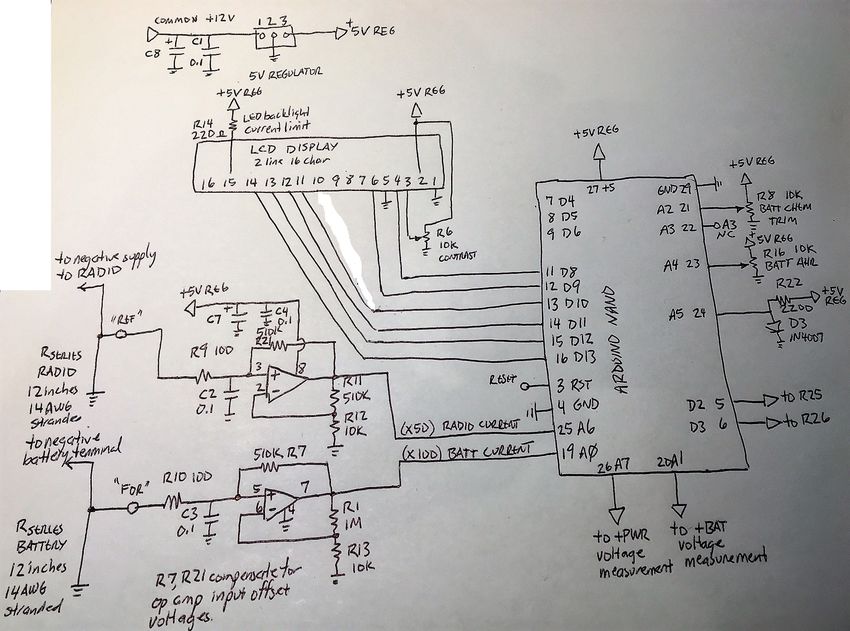 COMMON +12V
1 2 3
+
5V REG
C8
+
C1
0.1
5V REGULATOR
+5V REG
+5V REG
R14
220Ω
LED backlight
current limit
LCD DISPLAY
2 line 16 char
16 15 14 13 12 11 10 9 8 7 6 5 4 3 2 1
R6
10K
CONTRAST
+5V REG
27 +5
GND 29
7 D4
8 D5
9 D6
11 D8
12 D9
13 D10
14 D11
15 D12
16 D13
3 RST
4 GND
25 A6
19 A0
26 A7
20 A1
ARDUINO NANO
A2 21
A3 22
A4 23
A5 24
D2 5
D3 6
RESET
+5V REG
R8 10K
BATT CHEM
TRIM
A3
NC
+
5V REG
R16 10K
BATT AHR
R22
220Ω
+5V
REG
D3
1N4007
to R25
to R26
to +PWR
voltage
measurement
to +BAT
voltage
measurement
to negative supply
to RADIO
"REF"
RSERIES
RADIO
12 inches
14 AWG
stranded
+5V REG
C7
+
C4
0.1
510K
R21
R9 100
C2
0.1
3
+
2
-
8
R11
510K
R12
10K
(X50) RADIO CURRENT
(X100) BATT CURRENT
to negative
battery terminal
"FOR"
RSERIES
BATTERY
12 inches
14 AWG
stranded
R10 100
C3
0.1
510K R7
5
+
6
-
4
7
R1
1M
R13
10K
R7, R21 compensate for
op amp input offset
voltages.